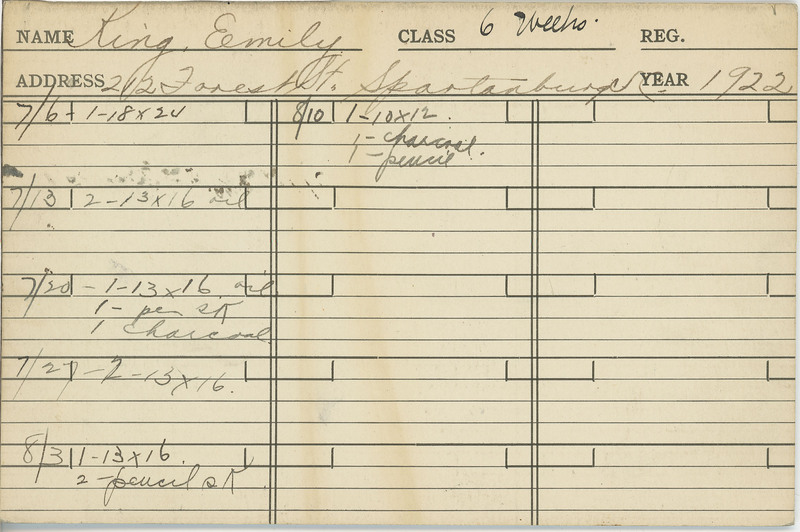 NAME King, Emily CLASS 6 Weeks. REG.
ADDRESS 212 Forest St. Spartanburg YEAR 1922
7/6 + 1-18x24
7/13 2-13x16 oil
7/20 - 1-13x16 oil
1- pen sk
1 charcoal
7/27 - 2 - 13x16.
8/3 1-13x16.
2-pencil sk
8/10 1-10x12.
1- charcoal.
1- pencil.